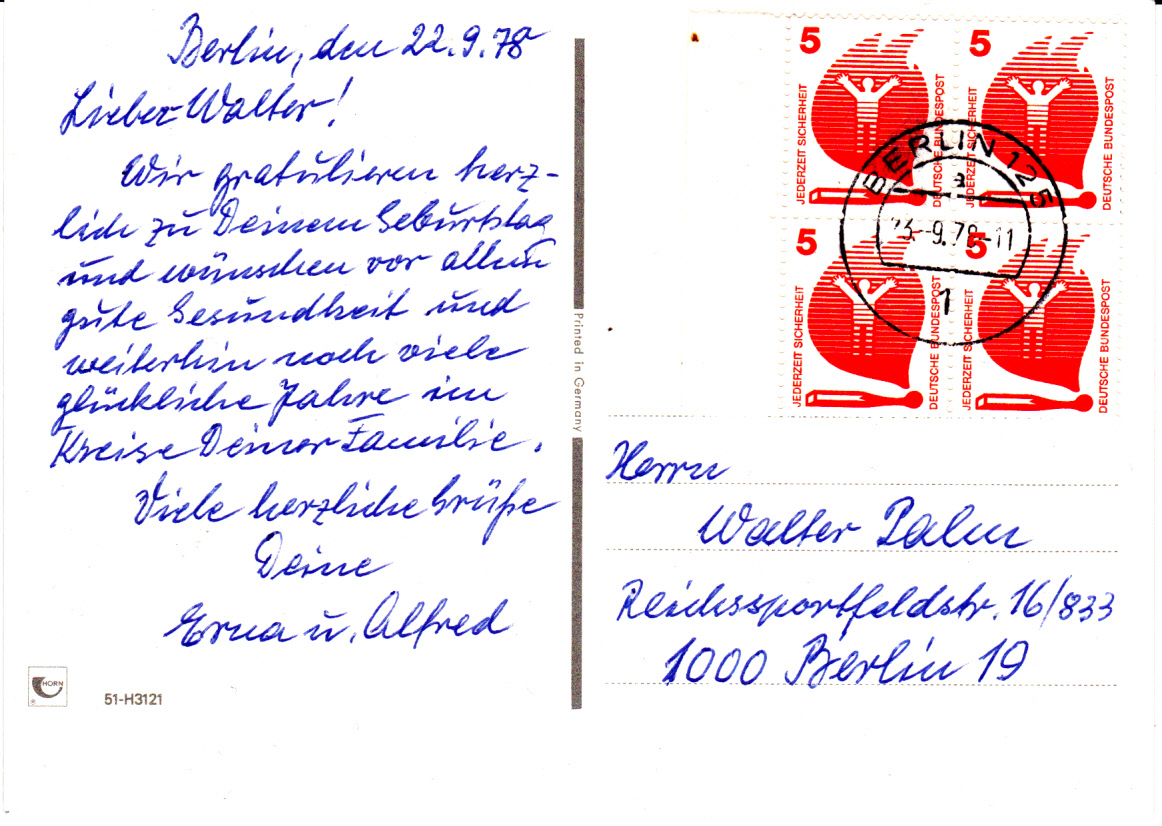 Berlin, den 22.9.78
Lieber Walter!
Wir gratulieren herz-
lich zu Deinem Geburtstag
und wünschen vor allem
gute Gesundheit und
weiterhin noch viele
glückliche Jahre im
Kreise Deiner Familie.
Viele herzliche Grüße
Deine
Erna u. Alfred
HORN
®
51-H3121
Printed in Germany
5
JEDERZEIT SICHERHEIT
DEUTSCHE BUNDESPOST
5
JEDERZEIT SICHERHEIT
DEUTSCHE BUNDESPOST
5
JEDERZEIT SICHERHEIT
DEUTSCHE BUNDESPOST
5
JEDERZEIT SICHERHEIT
DEUTSCHE BUNDESPOST
BERLIN 125
a
23.-9.78-11
1
Herrn
Walter Palm
Reichssportfeldstr. 16/833
1000 Berlin 19